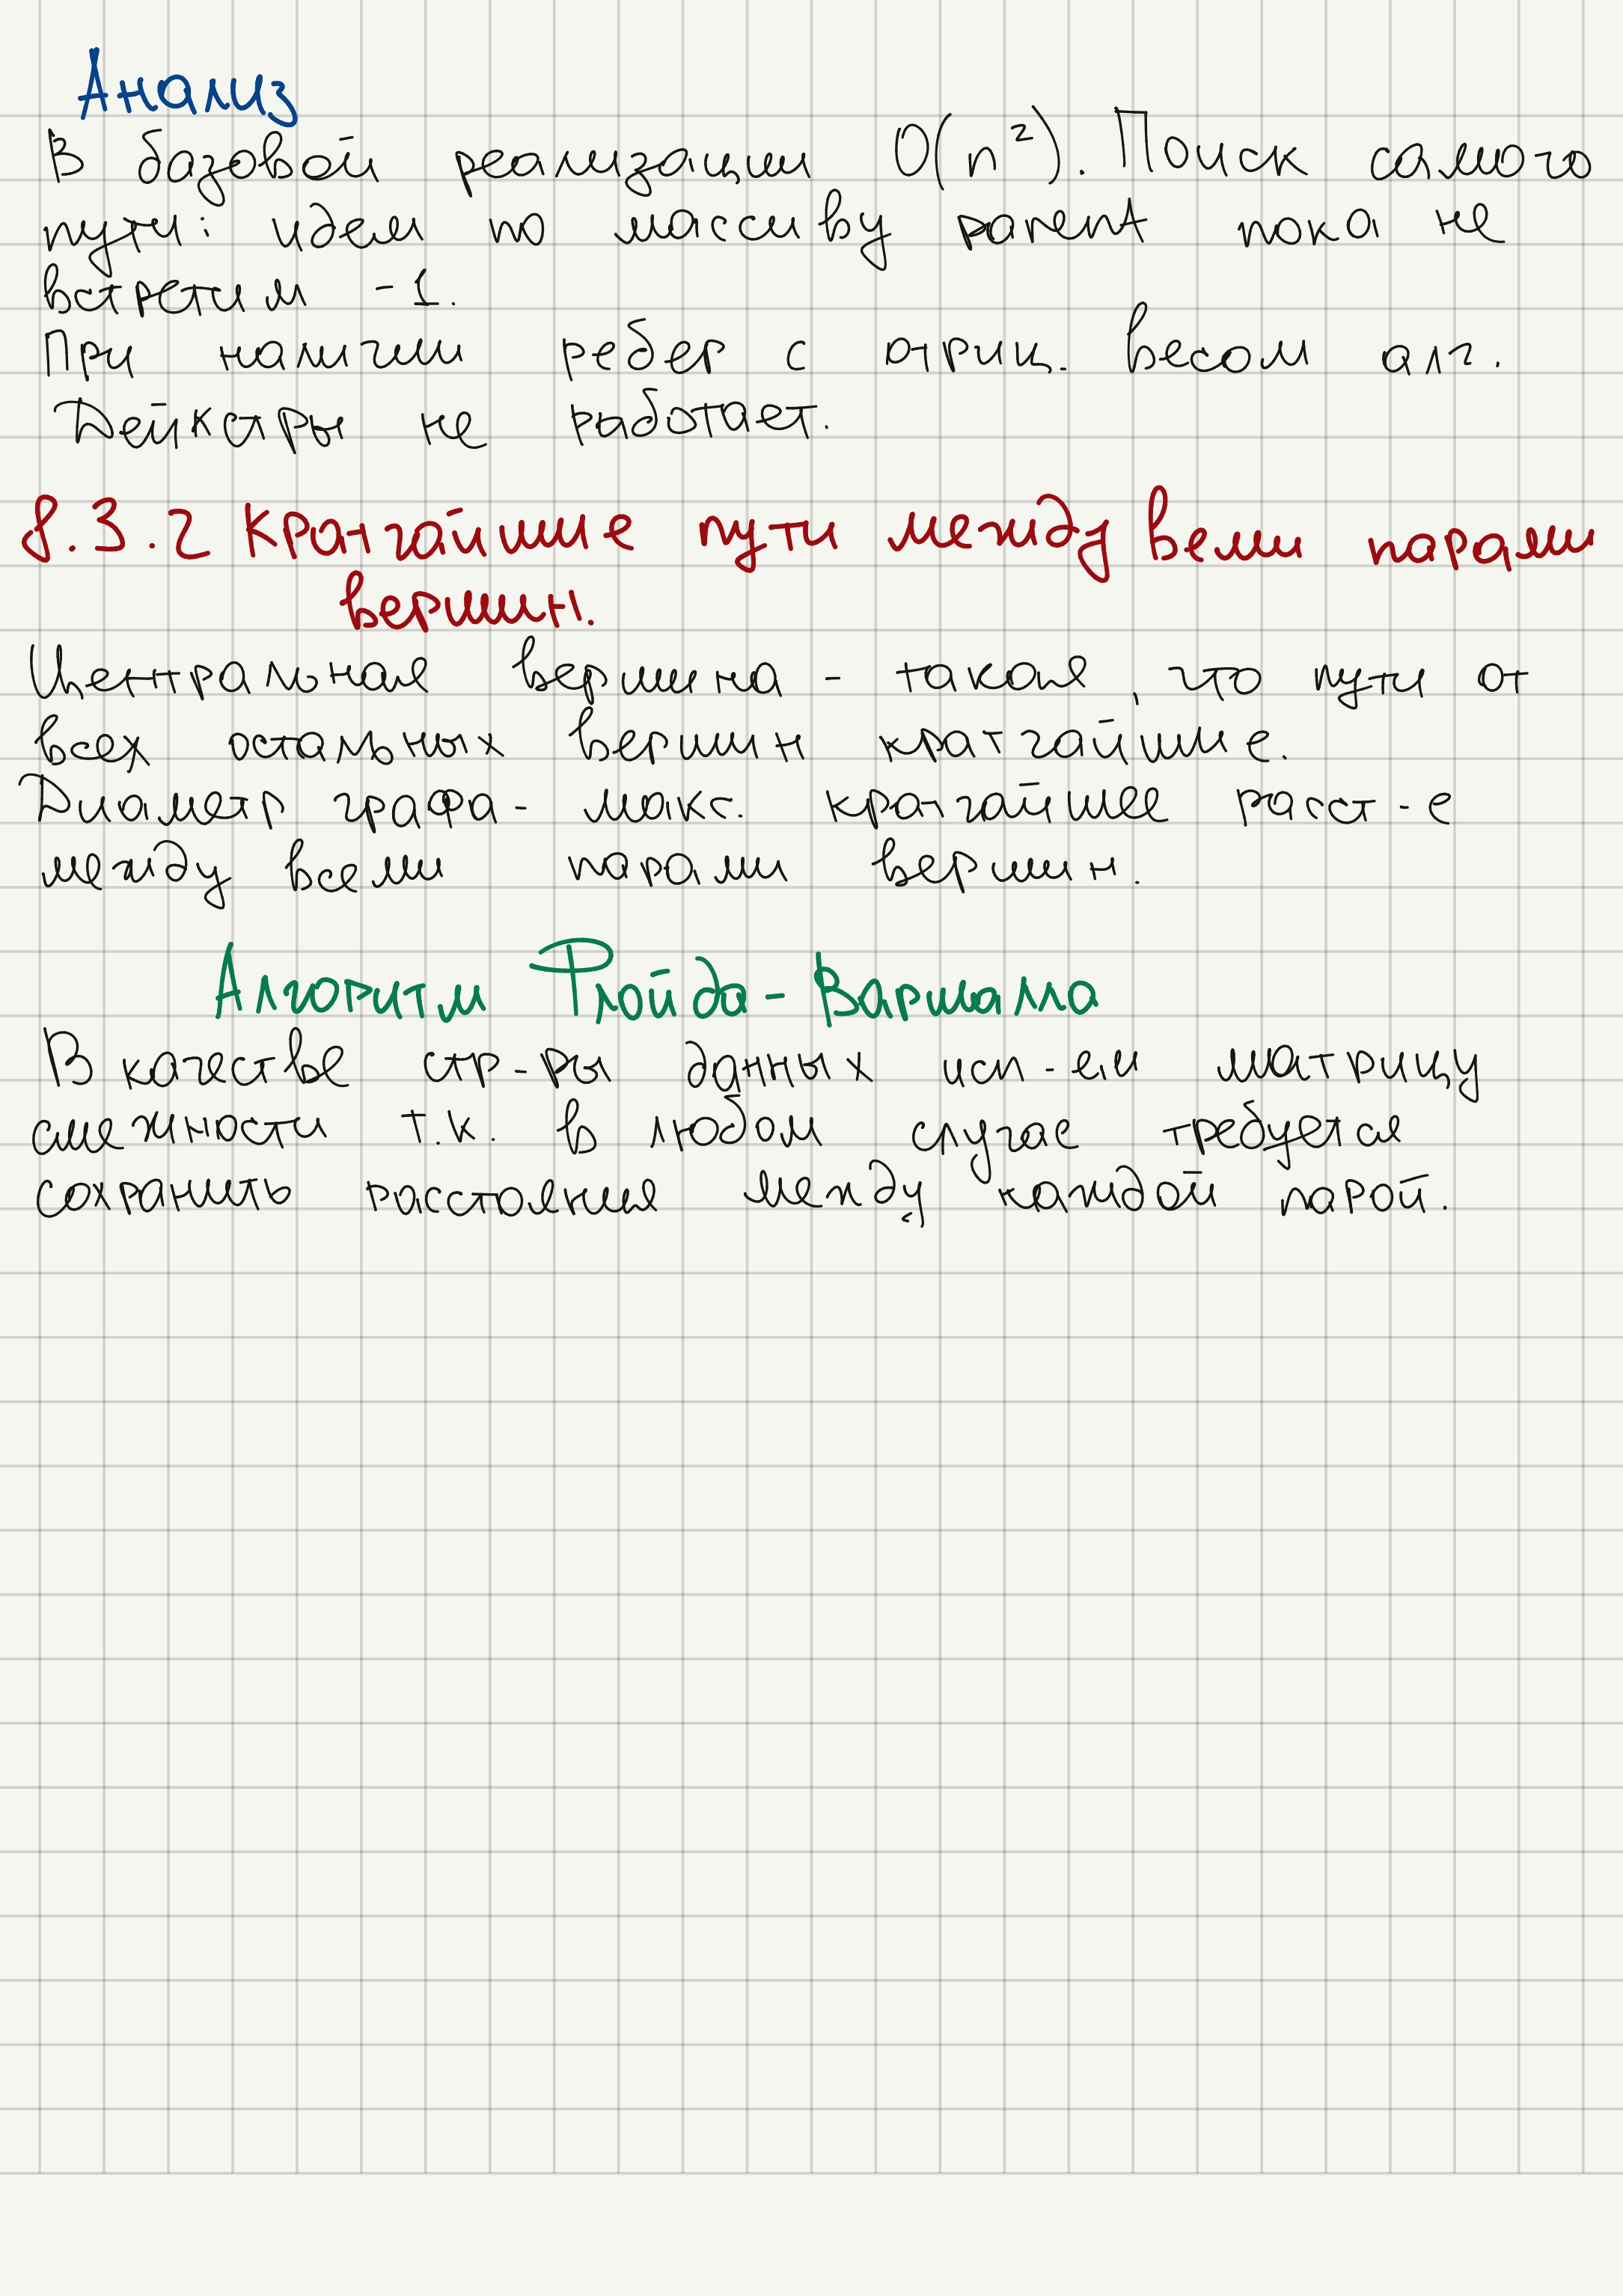 Анализ
В базовой реализации O(n²). Поиск самого
пути: идем по массиву parent пока не
встретим -1.
При наличии ребер с отриц. весом алг.
Дейкстры не работает.
8.3.2 Кратчайшие пути между веми парами
вершин.
Центральная вершина - такая, что пути от
всех остальных вершин кратчайшие.
Диаметр графа - макс. кратчайшее расст-е
между всеми парами вершин.
Алгоритм Флойда-Варшалла
В качестве стр-ры данных исп-ем матрицу
смежности т.к. в любом случае требуется
сохранить расстояния между каждой парой.